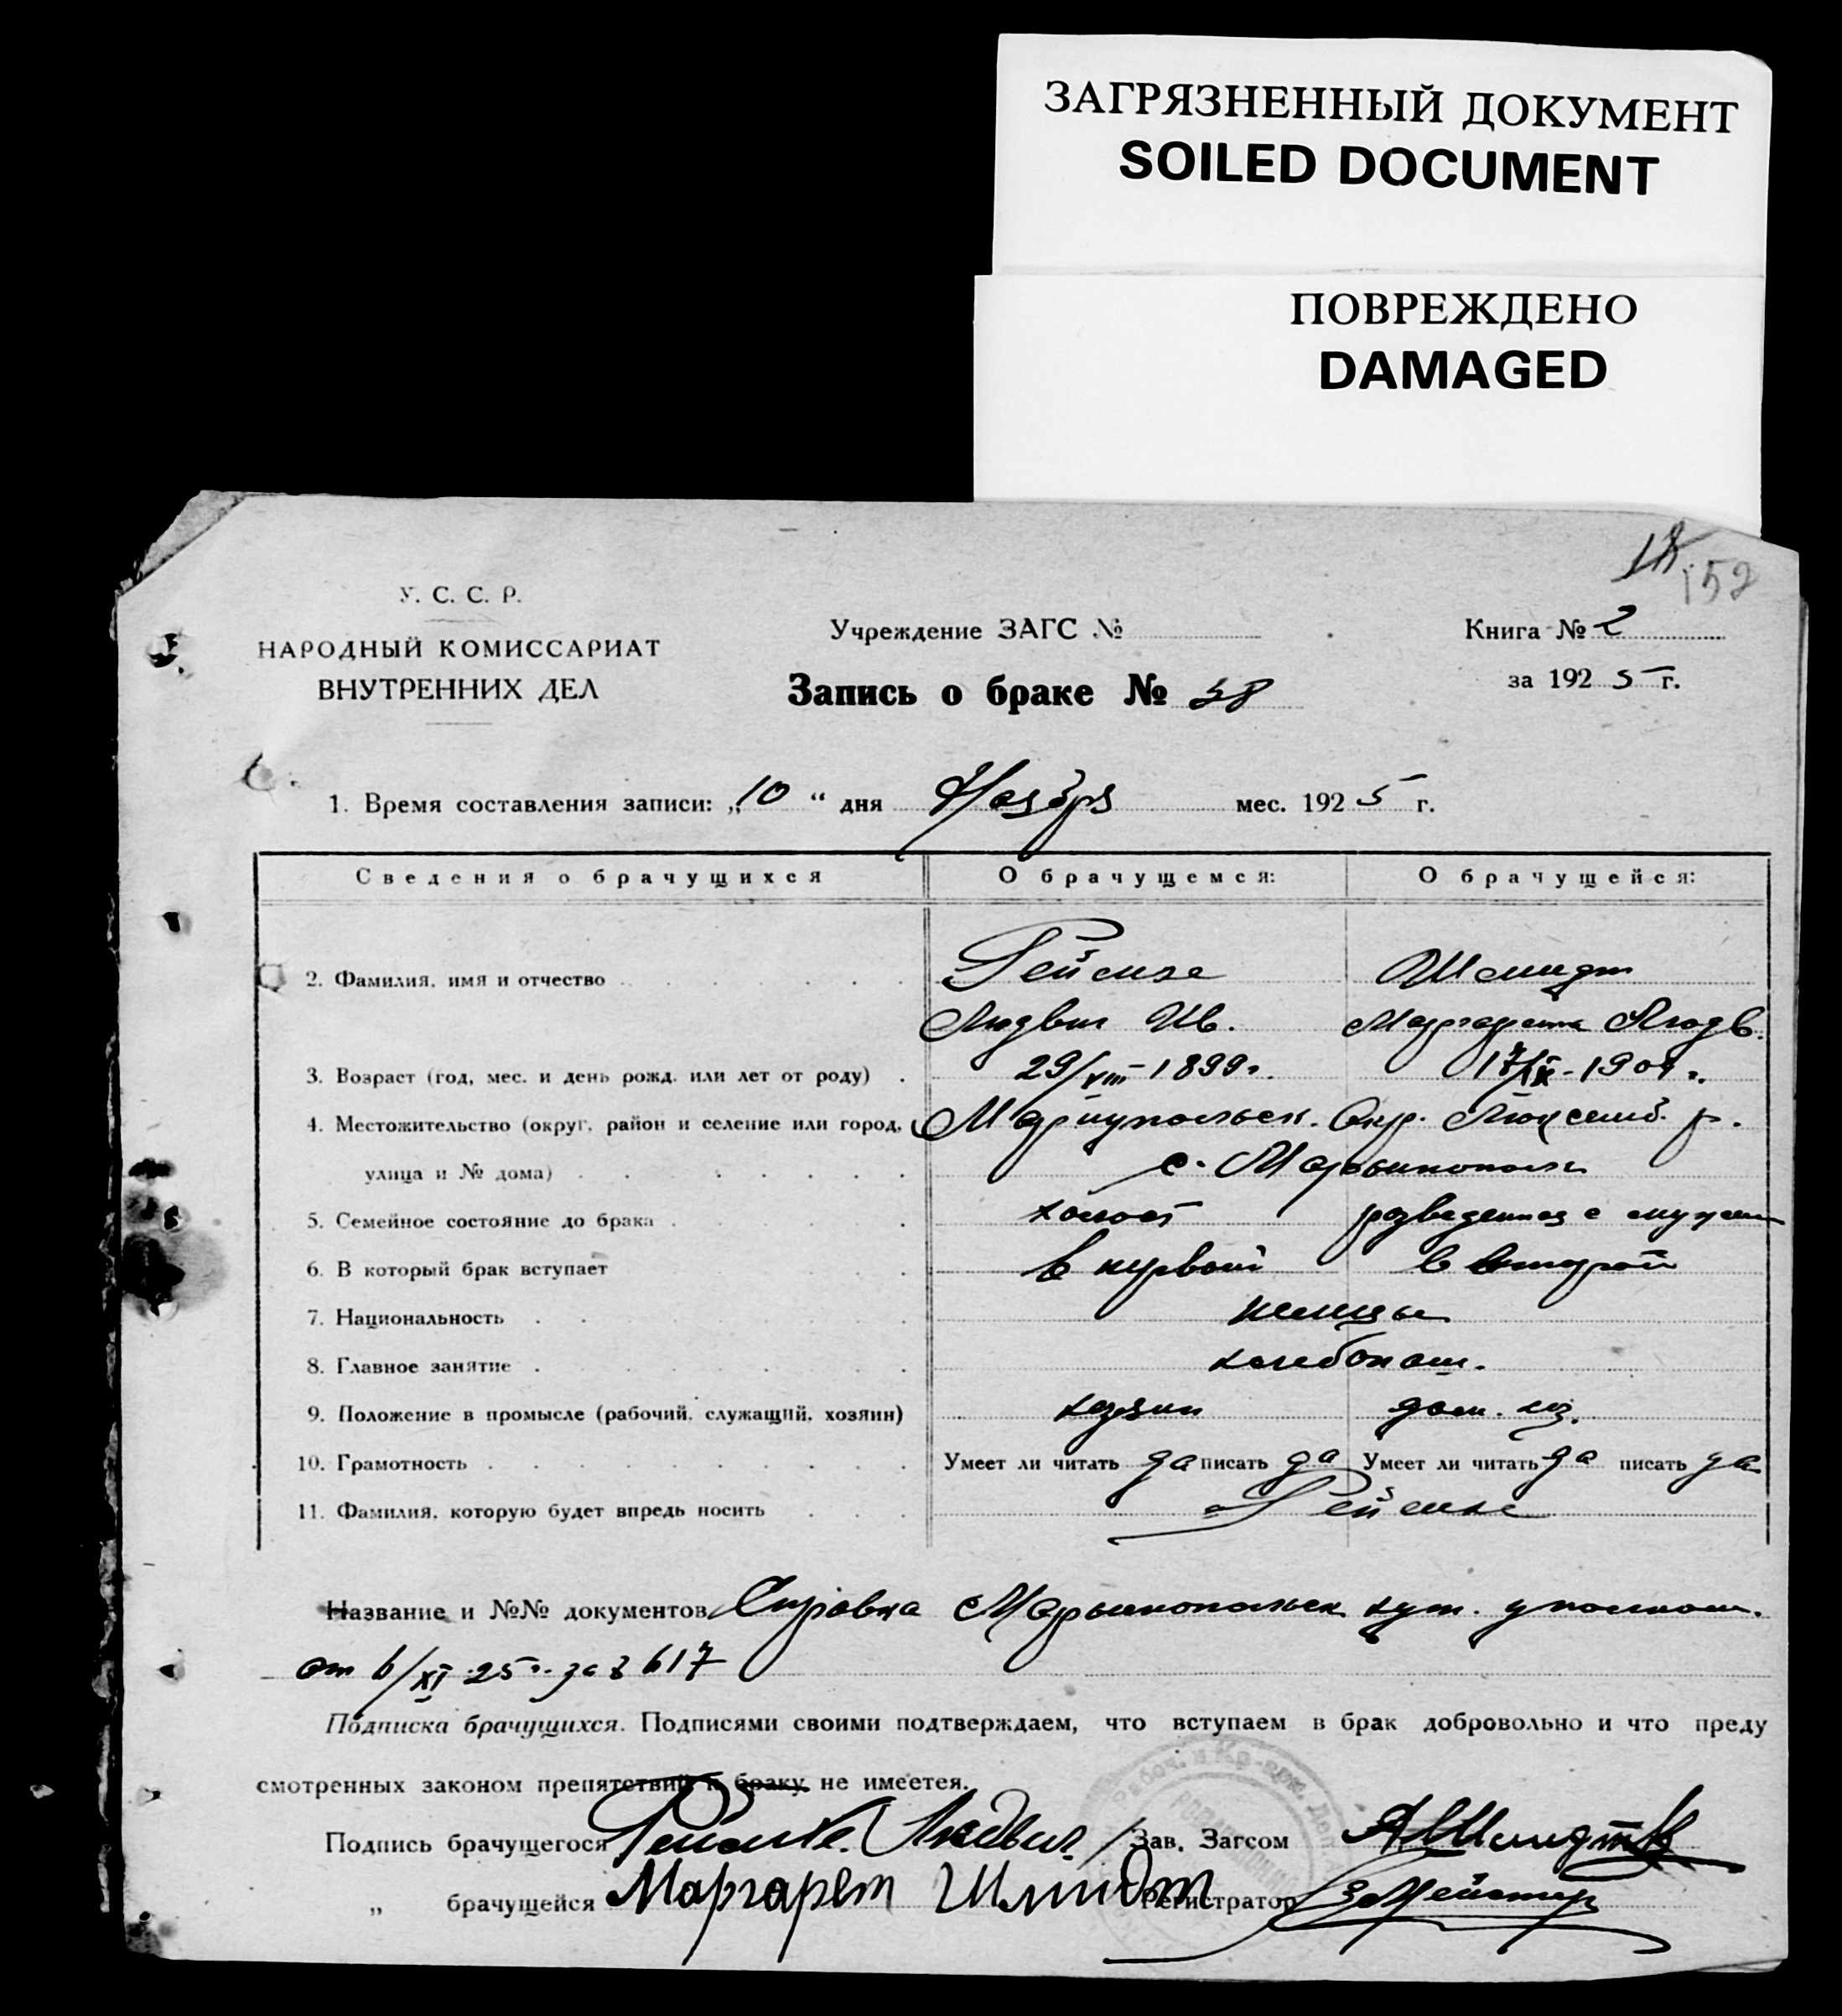 ЗАГРЯЗНЕННЫЙ ДОКУМЕНТ
SOILED DOCUMENT
ПОВРЕЖДЕНО
DAMAGED
152
У. С. С. Р.
НАРОДНЫЙ КОМИССАРИАТ
ВНУТРЕННИХ ДЕЛ
Учреждение ЗАГС №
Запись о браке № 58
Книга № 2
за 1925 г.
1. Время составления записи: „10“ дня Ноября мес. 1925 г.
Сведения о брачущихся О брачущемся: О брачущейся:
2. Фамилия, имя и отчество Рейсихе Шмидт
Людвиг Ив. Маргарета Людв.
3. Возраст (год, мес. и день рожд. или лет от роду) 29/VIII 1899 г. 17/IX - 1904 г.
4. Местожительство (округ, район и селение или город, Мариупольск. Окр. Люксемб. р.
улица и № дома) с. Марьинополь
5. Семейное состояние до брака холост разведенная с мужем
6. В который брак вступает в первый в второй
7. Национальность немцы
8. Главное занятие хлебопаш.
9. Положение в промысле (рабочий, служащий, хозяин) хозяин дом. хоз.
10. Грамотность Умеет ли читать да писать да Умеет ли читать да писать да
11. Фамилия, которую будет впредь носить
Название и №№ документов Справка Марьинопольск хут. уполном.
от 6/XI 25 г. за № 617
Подписка брачущихся. Подписями своими подтверждаем, что вступаем в брак добровольно и что преду
смотренных законом препятствий к браку не имеется.
Подпись брачущегося Людвиг Зав. Загсом АШмидт
„ брачущейся Маргарет Шмидт Регистратор